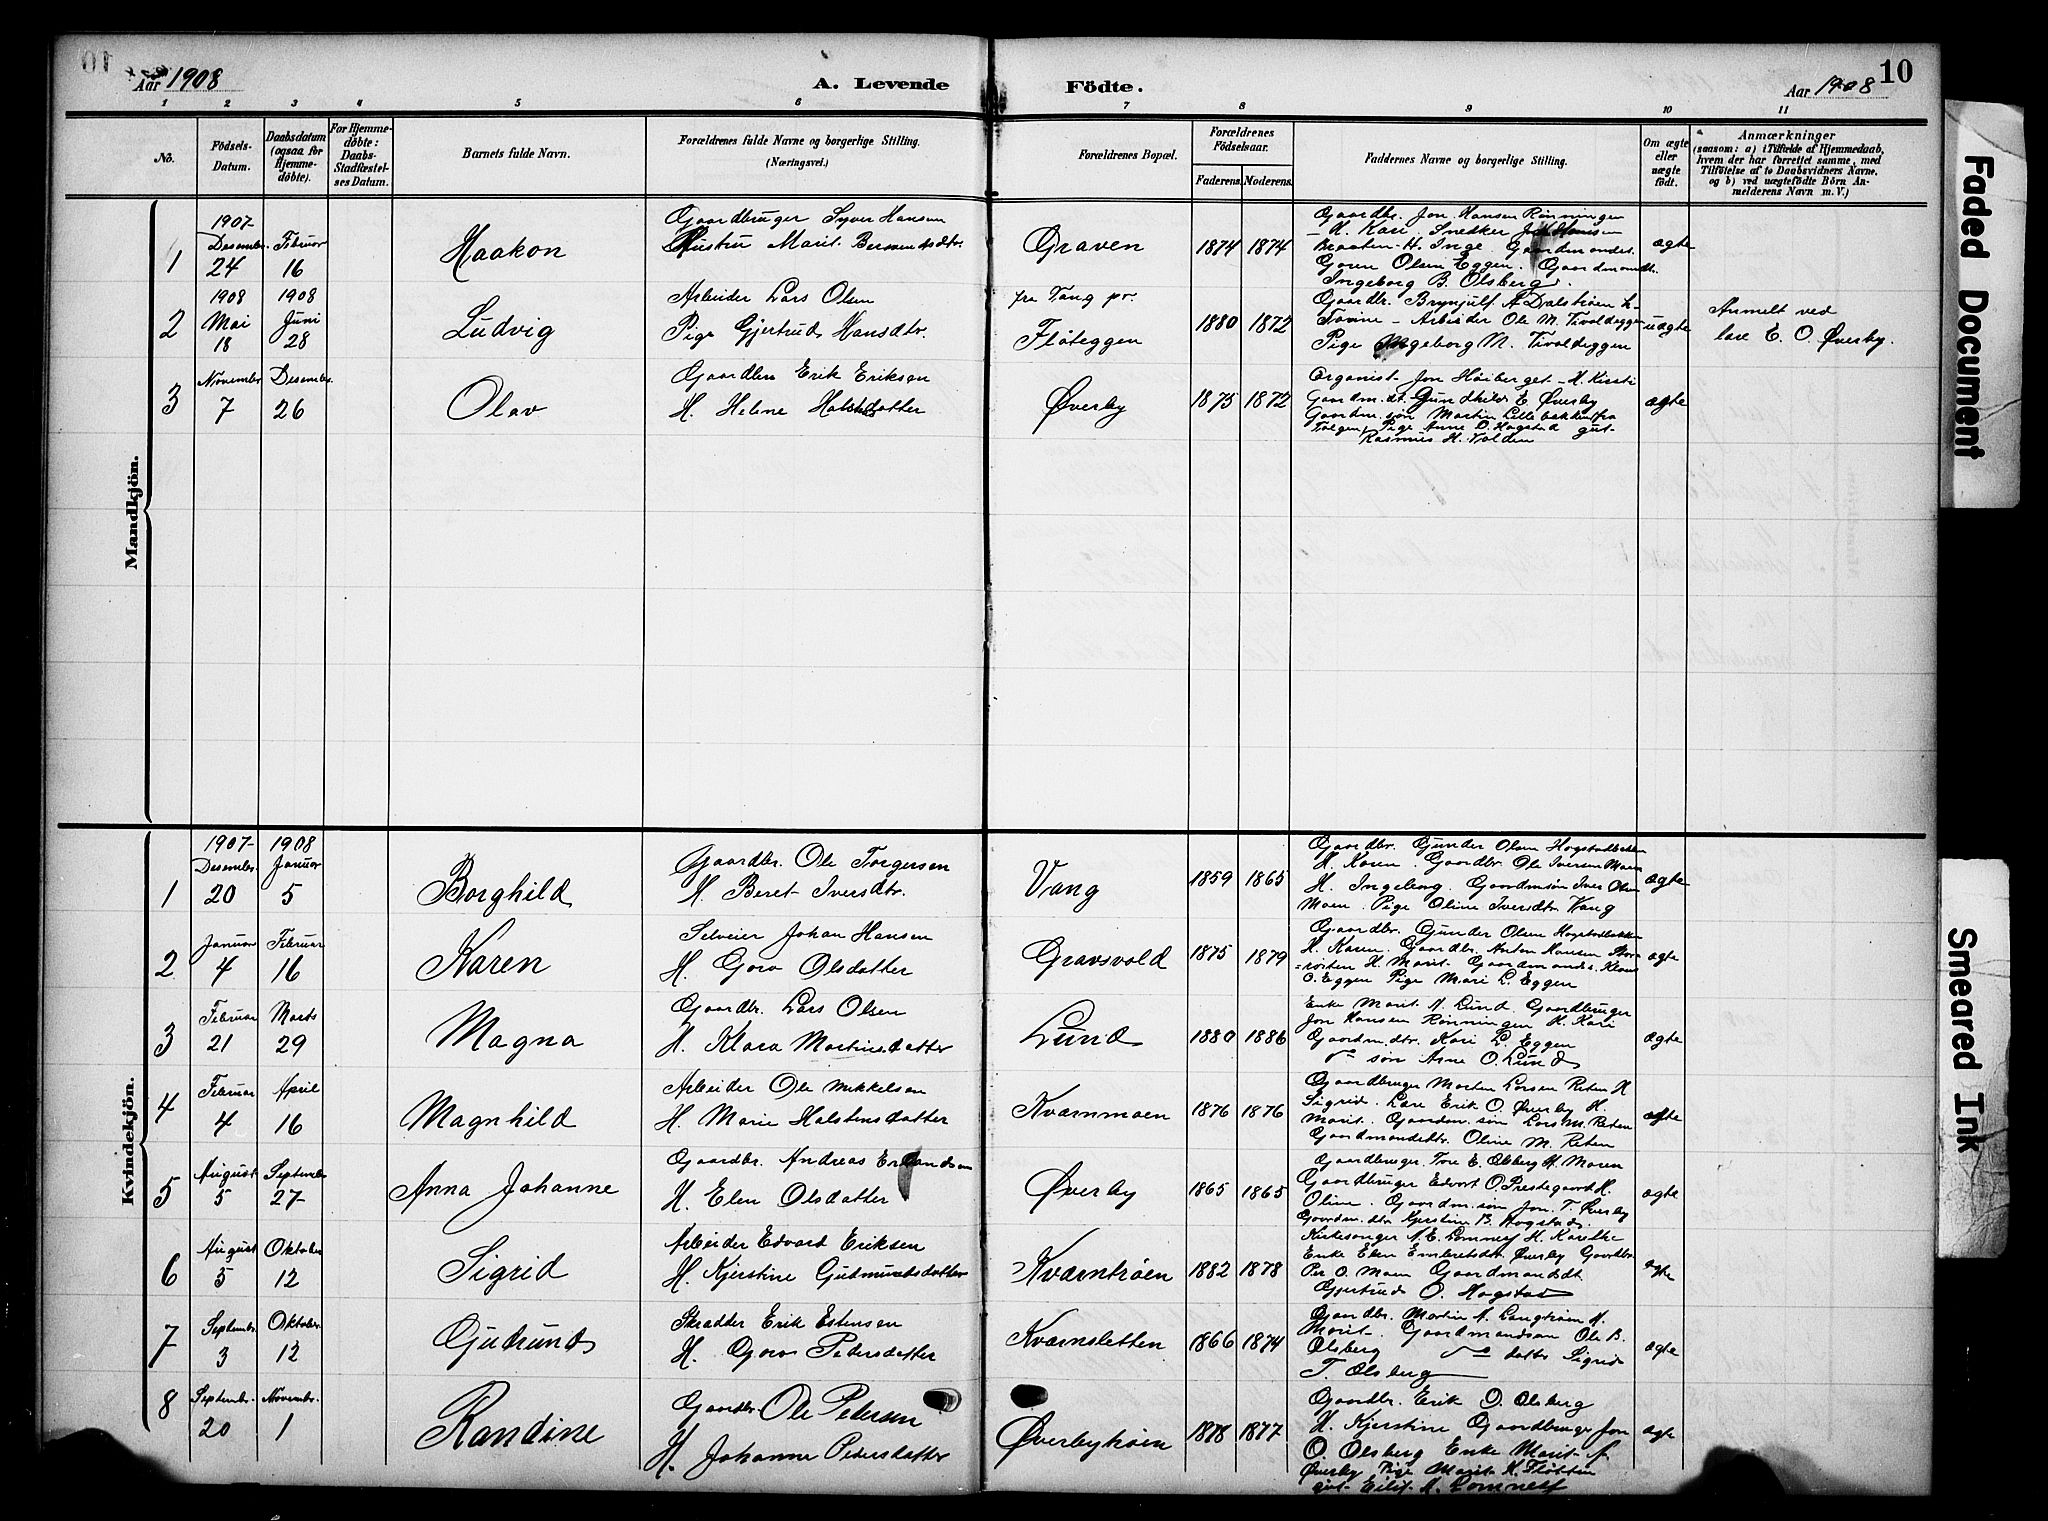 Aar 1908
A. Levende Födte.
10
Aar 1908
1 2 3 4 5 6 7 8 9 10 11
No.
Födsels-
Datum.
Daabsdatum
(ogsaa for
Hjemme-
döbte).
For Hjemme-
döbte:
Daabs-
Stadfæstel-
ses Datum.
Barnets fulde Navn.
Forældrenes fulde Navne og borgerlige Stilling.
(Næringsvei.)
Forældrenes Bopæl.
Forældrenes
Födselsaar.
Faderens. Moderens.
Faddernes Navne og borgerlige Stilling.
Om ægte
eller
uægte
födt.
Anmærkninger
(saasom: a) i Tilfælde af Hjemmedaab,
hvem der har forrettet samme, med
Tilföielse af to Daabsvidners Navne,
og b) ved uægtefödte Börn An-
melderens Navn m. V.)
Mandkjön.
1
1907
Desember
24
Februar
16
Haakon
Gaardbruger Syver Hansen
Hustru Marit Bersvendsdtr.
Graven
1874 1874
Gaardbr. Jon Hansen Rønningen
H. Kari. Snedker
Braaten H. Inge. Gaardmandsdt.
Goren Olsen Eggen. Gaardmandt.
Ingeborg B. Olsberg.
ægte
2
1908
Mai
18
1908
Juni
28
Ludvig
Arbeider Lars Olsen
Pige Gjertrud Hansdtr.
fra Tang pr.
Fløteggen
1880 1872
Gaardbr. Brynjulf A Dalstrøen H.
Tovine - Arbeider Ole M. Tivoldeggen
Pige Ingeborg M. Tivoldeggen
uægte
Anmelt ved
lære E. O. Øverby.
3
November
7
Desember
26
Olav
Gaardbr Erik Eriksen
H. Helene Halstensdatter
Øverby
1875 1872
Organist Jon Høiberget H. Kirsti
Gaardm.dt. Gunhild E Øverby
Gaardm. søn Martin Lillebakken fra
Tolgen, Pige Anne O. Hogstad gut
Rasmus H. Tolden
ægte
Kvindekjön.
1
1907
Desember
20
1908
Januar
5
Borghild
Gaardbr. Ole Torgersen
H. Beret Iversdtr.
Vang
1859 1865
Gaardbr. Gunder Olsen Hogstadbakken
H. Karen. Gaardbr. Ole Iversen Moen
H. Ingeborg. Gaardmsøn Iver Olsen
Moen. Pige Oline Iversdtr Vang
ægte
2
Januar
4
Februar
16
Karen
Selveier Johan Hansen
H. Goro Olsdatter
Gravsvold
1875 1879
Gaardbr. Gunder Olsen Hogstadbakken
H. Karen. Gaardbr. Anton Hansen Stor
=røsten H. Marit. Gaardmandss. Klaus
O. Eggen Pige Mari L. Eggen
ægte
3
Februar
21
Marts
29
Magna
Gaardbr. Lars Olsen
H. Klara Martinusdatter
Lund
1880 1886
Enke Marit A. Lund. Gaardbruger
Jon Hansen Rønningen H. Kari
Gaardm. dtr. Kari L. Eggen
do søn Arne O. Lund
ægte
4
Februar
4
April
16
Magnhild
Arbeider Ole Mikkelsen
H. Marie Halstensdatter
Kværnmoen
1876 1876
Gaardbruger Morten Larsen Røten H
Sigrid. Lære Erik O. Øverby H.
Marit. Gaardm. søn Lars M. Røten
Gaardmandsdtr. Oline M. Røten
ægte
5
August
5
September
27
Anna Johanne
Gaardbr. Andreas Erlandsen
H. Elen Olsdatter
Øverby
1865 1865
Gaardbruger. Tore E. Olsberg H. Maren
Gaardbruger Edvart O Prestegaard H.
Oline. Gaardm. søn Jon T. Øverby
Gaardm. dtr Kjerstine B. Hogstad.
ægte
6
August
5
Oktober
12
Sigrid
Arbeider Edvard Eriksen
H. Kjerstine Gudmundsdatter
Kværntrøen
1882 1878
Kirkesanger A. E. Lomnes H. Karelke
Enke Elen Embretsdtr Øverby Gaardbr
Per O. Moen Gaardmandsdt
Gjertrud O. Hogstad
ægte
7
September
3
Oktober
12
Gudrund
Skrædder Erik Estensen
H. Goro Pedersdatter
Kværnsletten
1866 1874
Gaardbr. Martin A. Langtrøen H.
Marit. Gaardmandssøn Ole B.
Olsberg do datter Sigrid
T. Olsberg
ægte
8
September
20
November
1
Randine
Gaardbr. Ole Petersen
H. Johanne Pedersdatter
Øverbytrøen
1878 1877
Gaardbr. Erik O. Olsberg
H. Kjerstine Gaardbruger Jon
O. Olsberg Enke Marit A.
Øverby Pige Marit H. Fløtten
gut Eilif A. Lomnes
ægte
Faded Document
Smeared Ink